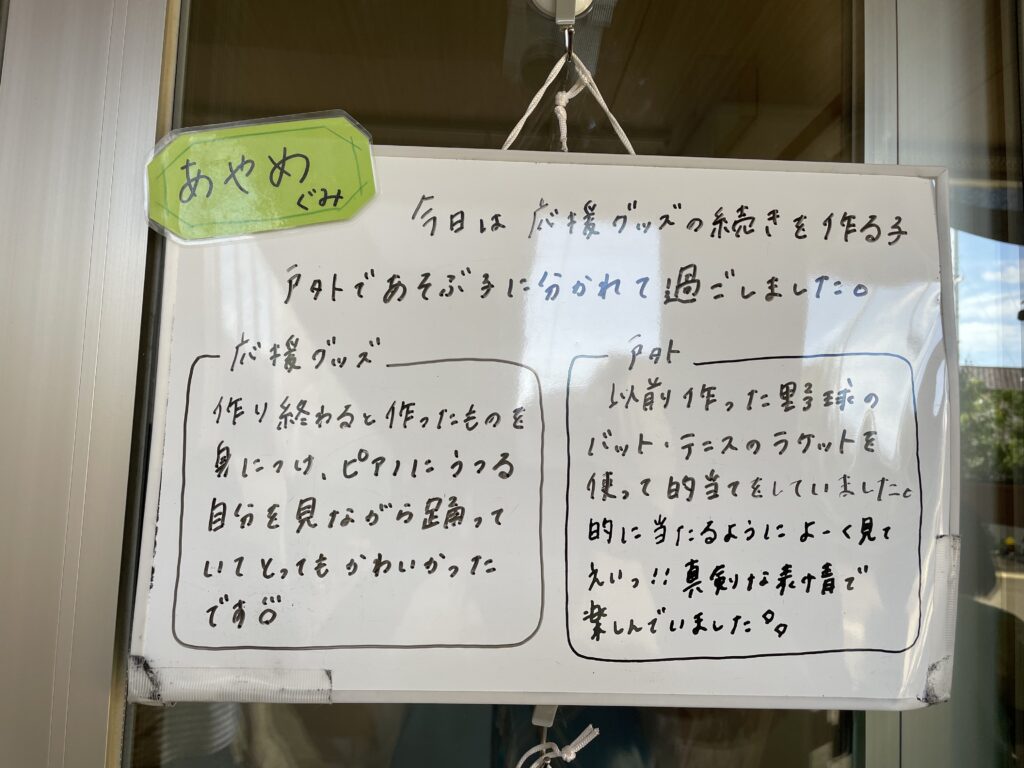 あやめ
ぐみ
今日は 応援グッズの続きを作る子
戸外であそぶ子に分かれて過ごしました。
応援グッズ
作り終わると作ったものを
身につけ、ピアノにうつる
自分を見ながら踊って
いてとってもかわいかった
です
戸外
以前作った野球の
バット・テニスのラケットを
使って的当てをしていました。
的に当たるようによーく見て
えいっ!!真剣な表情で
楽しんでいました。